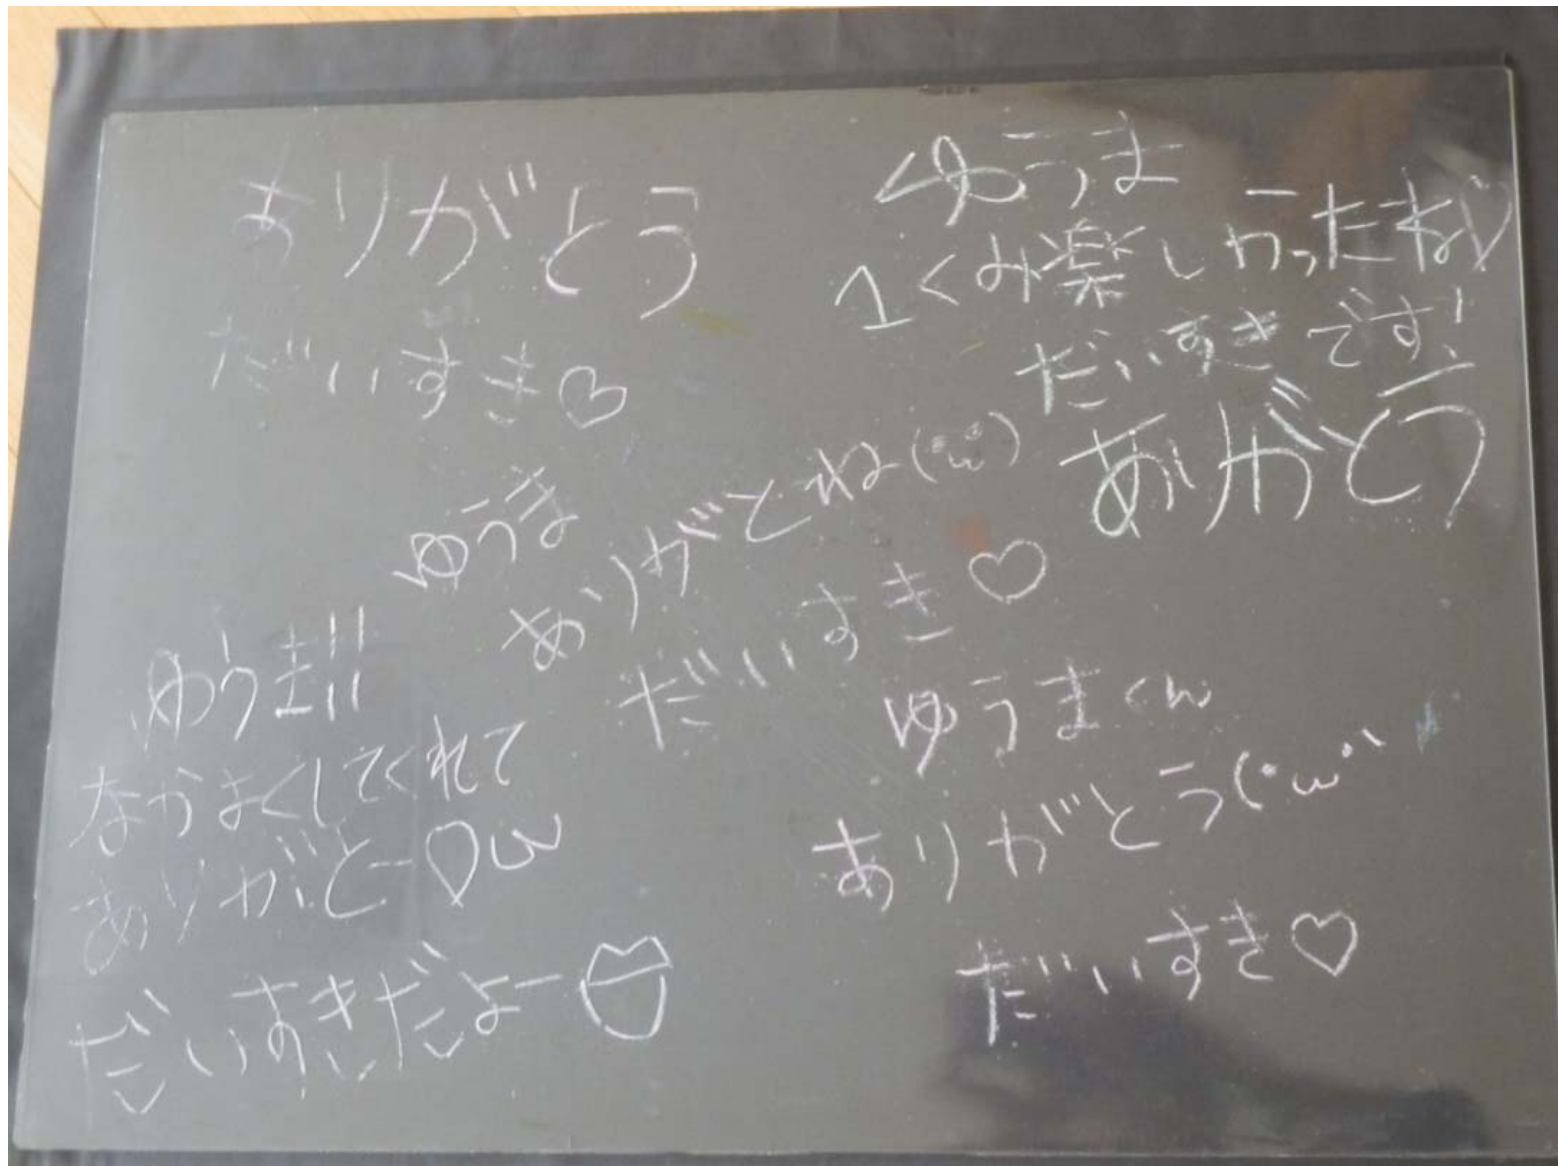 ありがとう
だいすき♡
ゆうま
1くみ楽しかったね♡
だいすきです!
ありがとう
ゆうま
ありがとね(･ω･)
だいすき♡
ゆうま!!
なかよくしてくれて
ありがとー♡ω
だいすきだよー
ゆうまくん
ありがとう(･ω･
だいすき♡